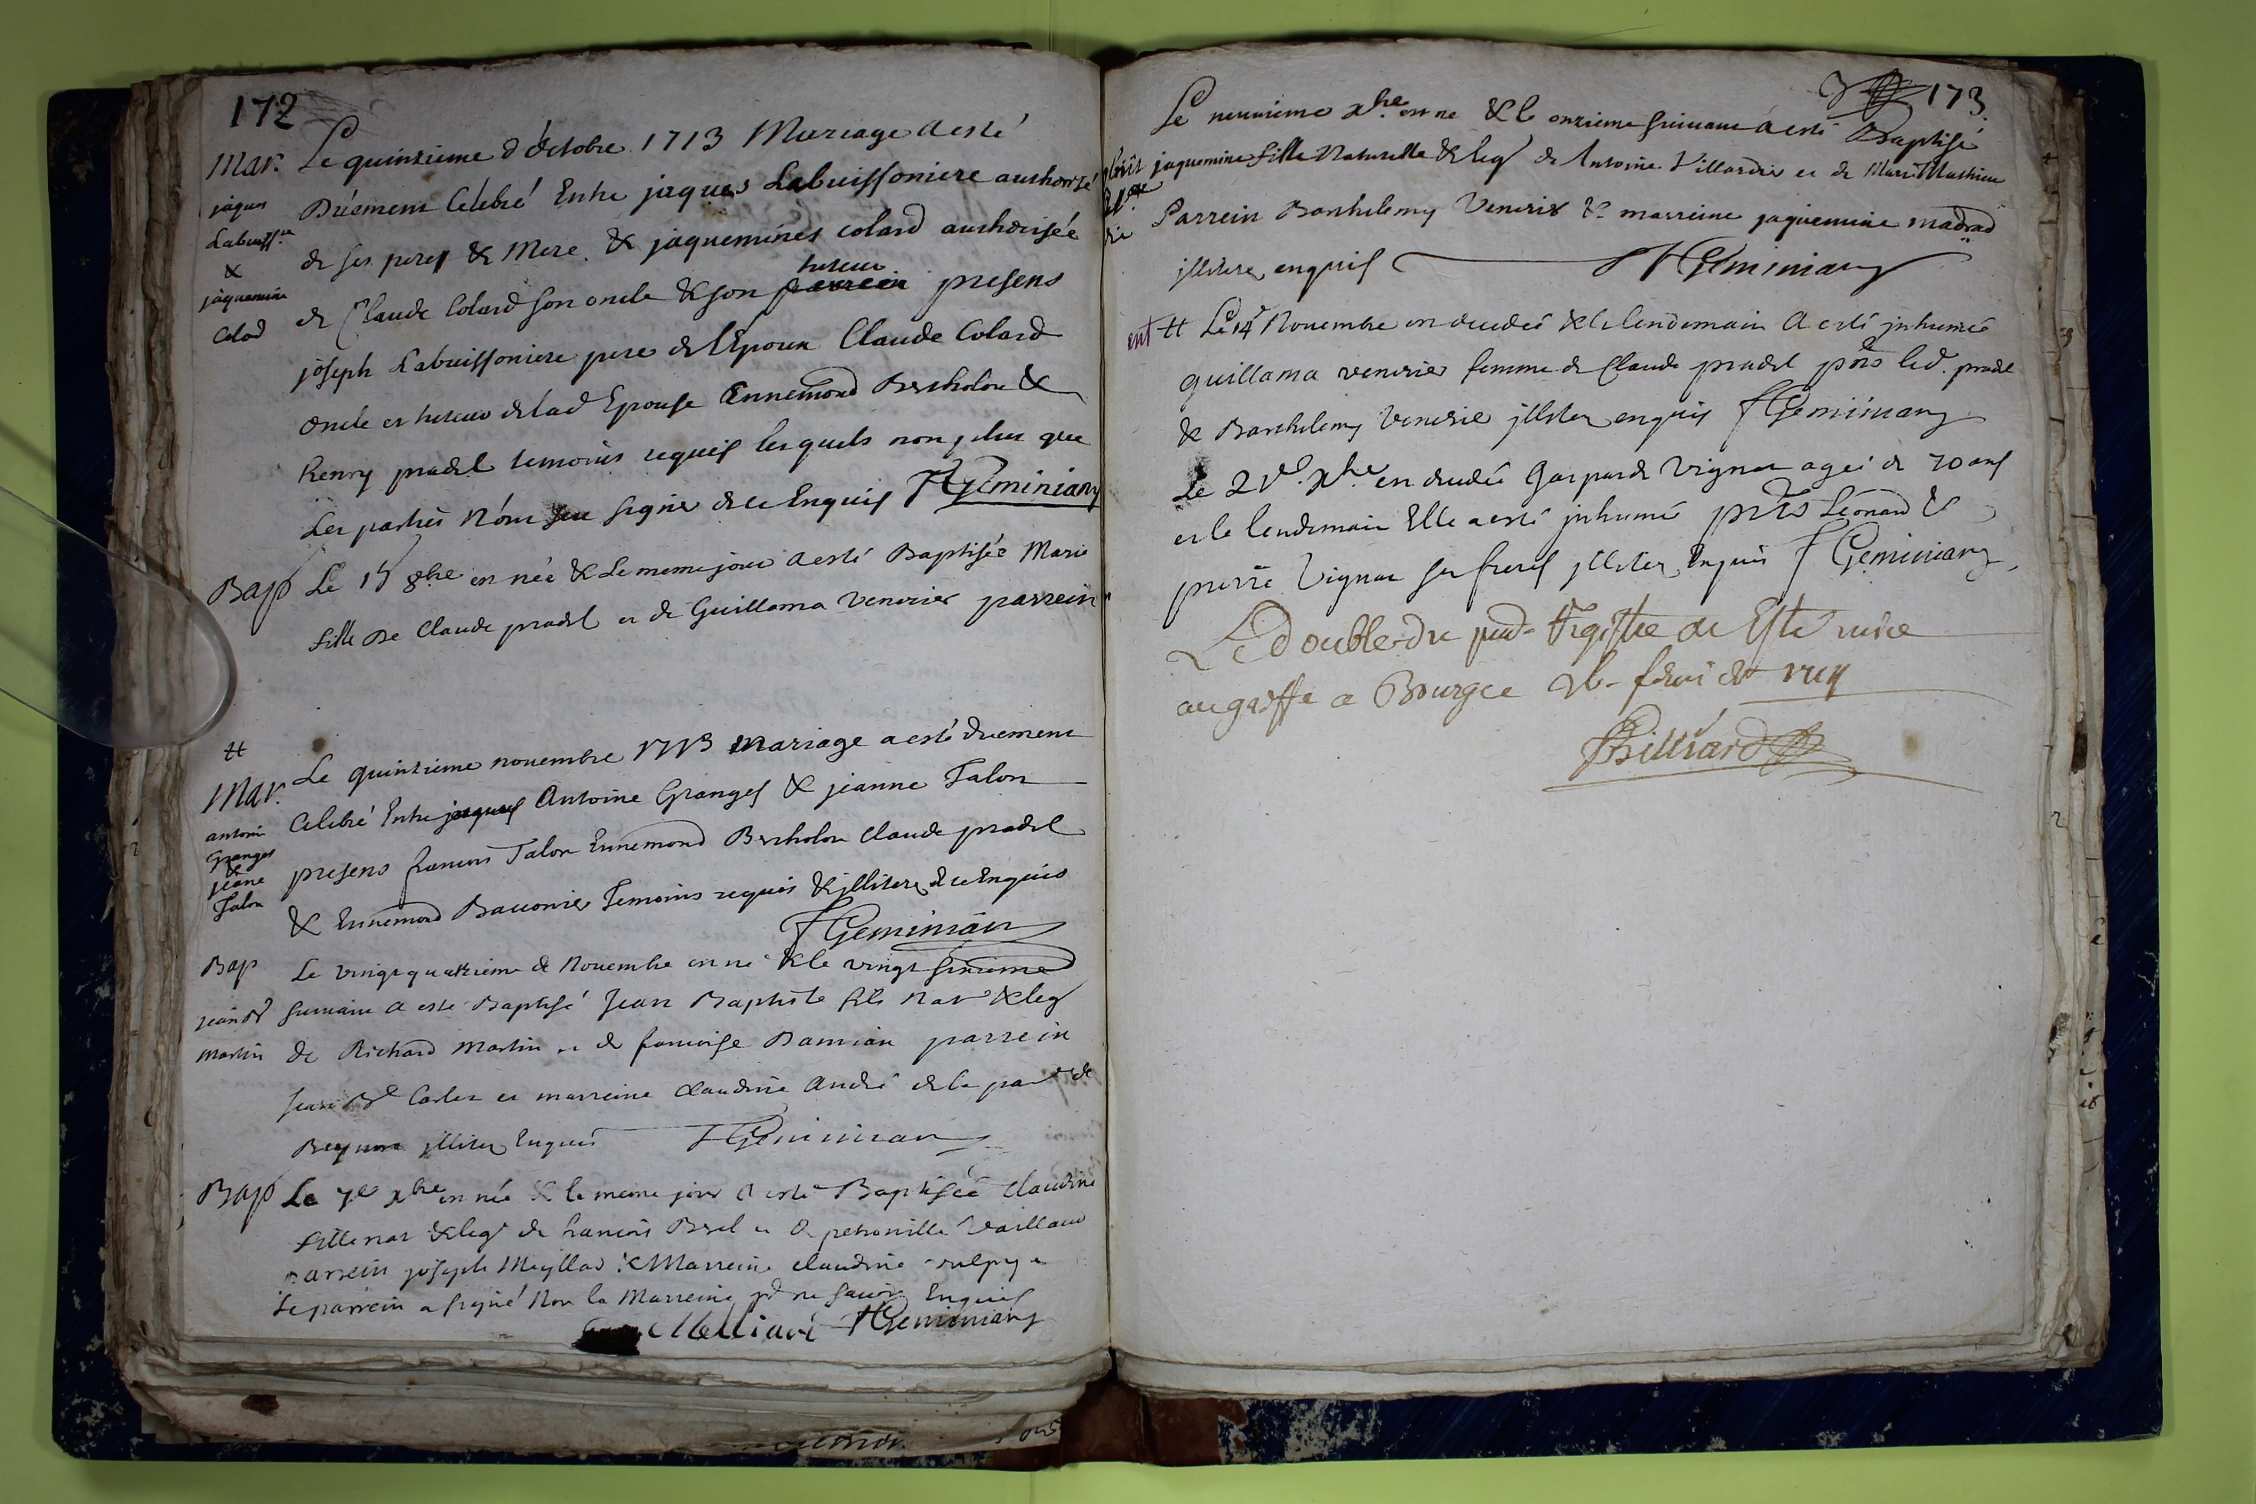 172
Mar. Le quinzieme d'octobre 1713 Mariage a esté
jaques Labuiss.re & jaquemine Colad
Düement Célébré Entre jaques Labuissoniere authorisé
de ses peres & Mere & jaquemines colard authorisée
de Claude Colard son oncle & son parrein tuteur presens
joseph Labuissoniere pere de l'Epoux Claude Colard
oncle et tuteur de lad Epouse Ennemond Bertholon &
henry pradel temoins requis lesquels non plus que
Les parties n'ont sceu signer de ce Enquis FGeminiany
Bap Le 15 8bre est née & Le meme jour a esté Baptisée Marie
fille De Claude pradel et de Guillama venerier parrein
Mar. Le quinzieme novembre 1713 mariage a esté duement
antoine Granges & jeane Talon
Celebré Entre jaques Antoine Granges & jeanne Talon
presens francois Talon Ennemond Bertholon Claude pradel
& Ennemond Bauonier Temoins requis & jlliterez de ce Enquis
FGeminian
Bap Le vingt quatrieme de Novembre est né & le vingt sixieme
jean Bt Martin
suivant a esté Baptisé Jean Baptiste fils nat & leg
de Richard Martin et de francoise Damian parrein
Jean Bt et marreine Claudine André de la par de
jlliter Enquis FGeminian
Bap Le 7e xbre est née & le meme jour a esté Baptisée Claudine
fille nat & leg de francois Brel et de petronille Vaillant
parrein joseph & Marreine claudine
le parrein a signé Non la Marreine pr ne savoir Enquis
FGeminiany
173
Le neuvieme xbre est né & le onzieme suivant a esté Baptisé
jaquemine fille Naturelle & leg de Antoine Villardier et de Marie Mathieu
Parrein Barthelemy Venerier & marreine jaquemine madrad
jlliterez enquis FGeminiany
ent Le 14e Novembre est decedée & le lendemain a esté jnhumée
guillama venerier femme de Claude pradel pnts led. pradel
& Barthelemy Venerier jlliter enquis FGeminiany
Le 2 xbre est decedée Gasparde Vignat agée de 70 ans
et le lendemain Elle a esté jnhumée pnts Léonard &
pierre Vignat ses freres jlliter Enquis FGeminiany
Le double du pnt Registre a Esté mise
au greffe a Bourgce
Billiard